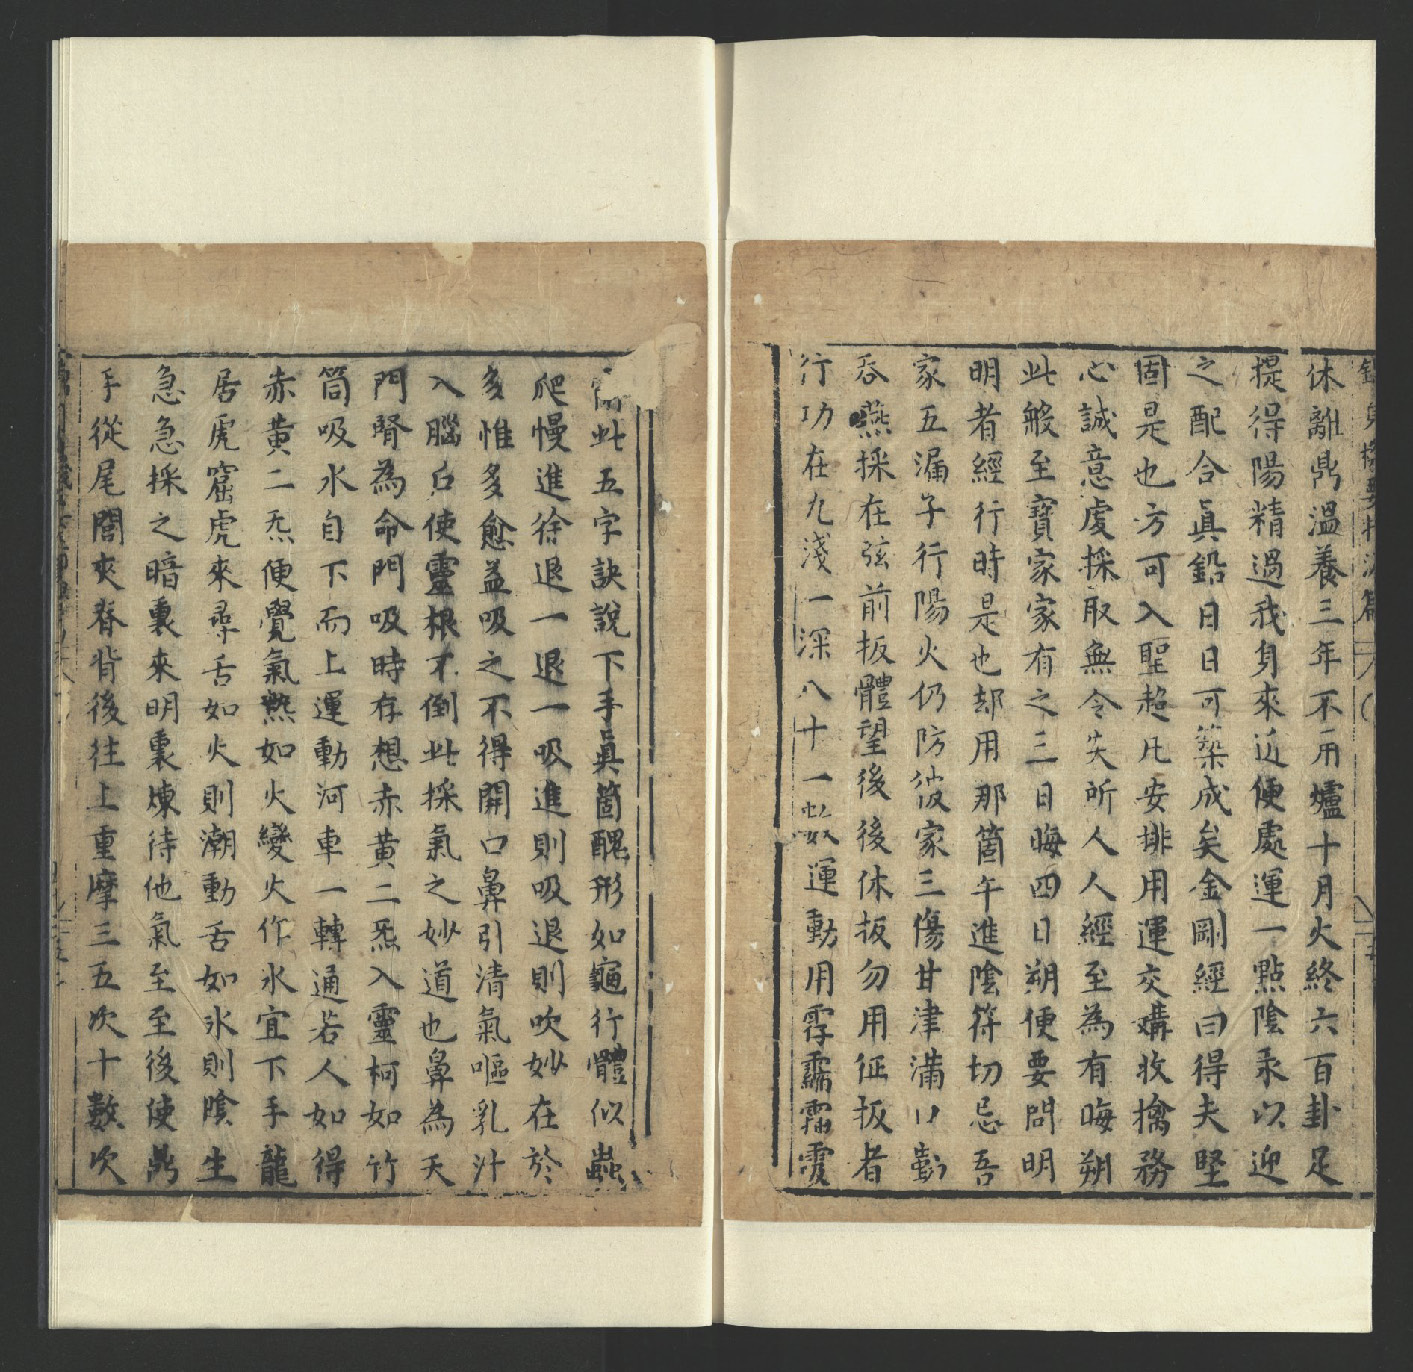 休離鼎溫養三年不用爐十月火終六百卦足
提得陽精過我身來近便處運一點陰汞以迎
之配合眞鉛日日可築成矣金剛經曰得夫堅
固是也方可入聖超凡安排用運交媾收擒務
心誠意虔採取無令失所人人經至為有晦朔
此般至寶家家有之三日晦四日朔便要問明
明者經行時是也却用那箇午進陰符切忌吾
家五漏子行陽火仍防彼家三傷甘津滿口
吞燕採在弦前扳體望後後休扳勿用征扳者
行功在九淺一深八十一數運動用
此五字訣說下手眞箇醜形如龜行體似蟲
爬慢進徐退一退一吸進則吸退則吹妙在於
多惟多愈益吸之不得開口鼻引清氣嘔乳汁
入腦后使靈根不倒此採氣之妙道也鼻為天
門腎為命門吸時存想赤黃二炁入靈柯如竹
筒吸水自下而上運動河車一轉通若人如得
赤黃二炁便覺氣熱如火變火作水宜下手龍
居虎窟虎來尋舌如火則潮動舌如氷則陰生
急急採之暗裏來明裏煉待他氣至至後使鼎
手從尾閭夾脊背後往上重摩三五次十數次